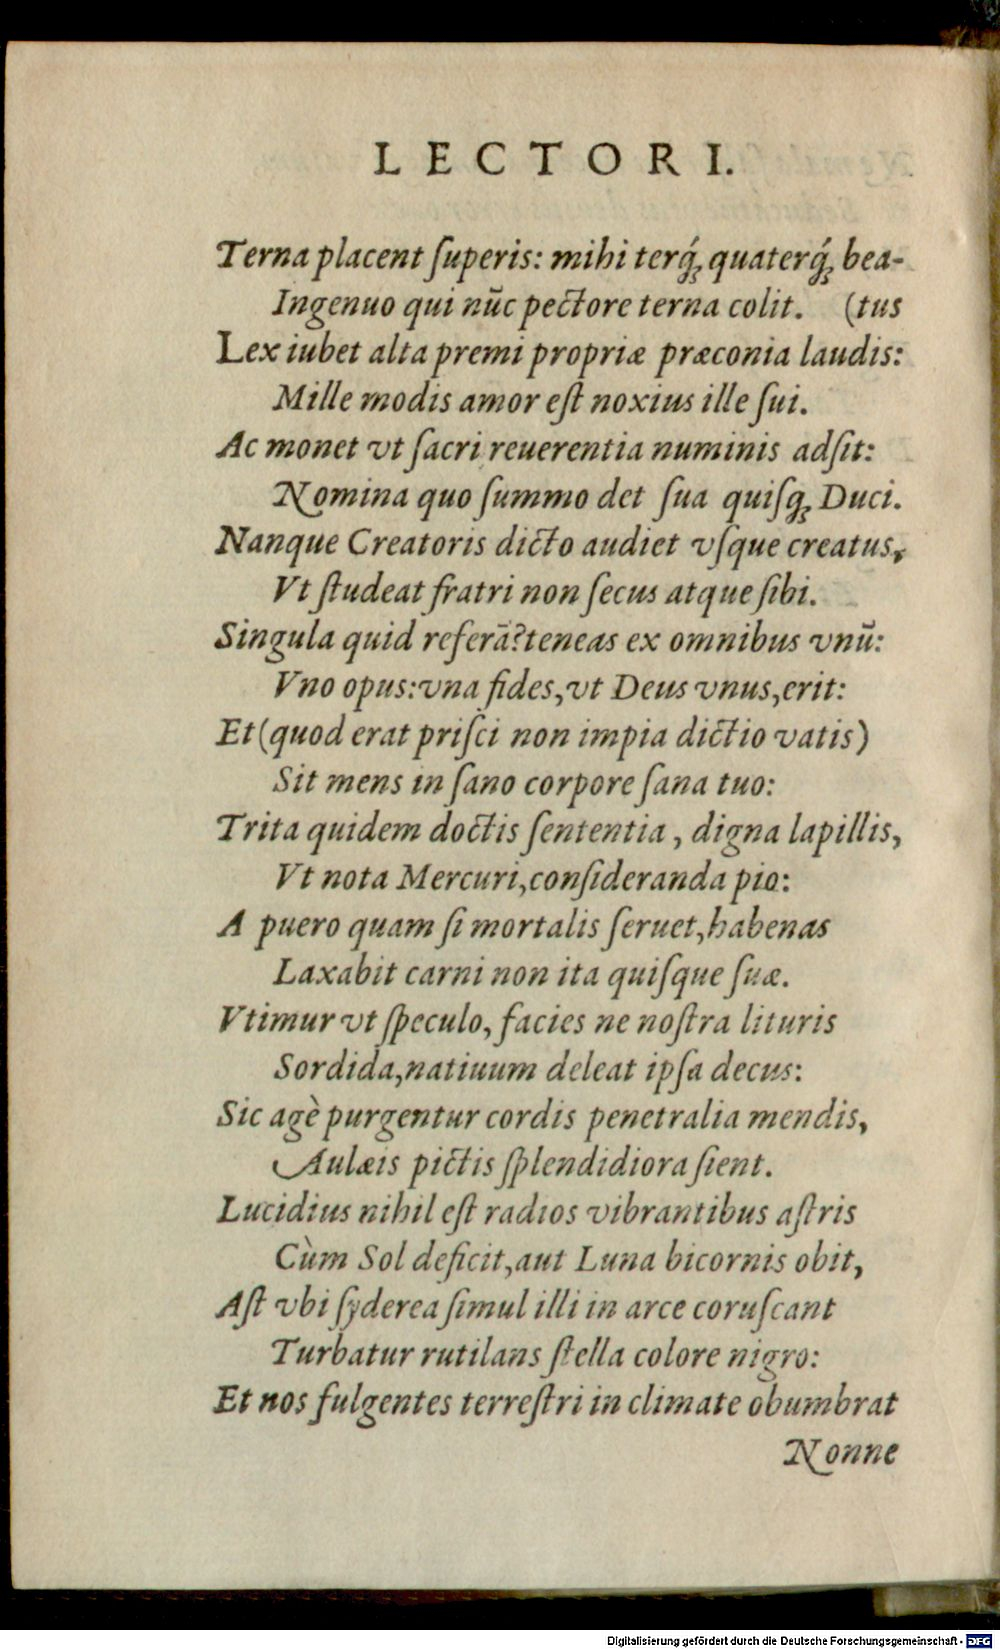 LECTORI.
Terna placent ſuperis: mihi terq́ꝫ quaterq́ꝫ bea-
Ingenuo qui nũc pectore terna colit. (tus
Lex iubet alta premi propriæ præconia laudis:
Mille modis amor eſt noxius ille ſui.
Ac monet vt ſacri reuerentia numinis adſit:
Nomina quo ſummo det ſua quiſqꝫ Duci.
Nanque Creatoris dicto audiet vſque creatus,
Vt ſtudeat fratri non ſecus atque ſibi.
Singula quid referā? teneas ex omnibus vnũ:
Vno opus: vna fides, vt Deus vnus, erit:
Et (quod erat priſci non impia dictio vatis)
Sit mens in ſano corpore ſana tuo:
Trita quidem doctis ſententia, digna lapillis,
Vt nota Mercuri, conſideranda pio:
A puero quam ſi mortalis ſeruet, habenas
Laxabit carni non ita quiſque ſuæ.
Vtimur vt ſpeculo, facies ne noſtra lituris
Sordida, natiuum deleat ipſa decus:
Sic agè purgentur cordis penetralia mendis,
Aulæis pictis ſplendidiora ſient.
Lucidius nihil eſt radios vibrantibus aſtris
Cùm Sol deficit, aut Luna bicornis obit,
Aſt vbi ſyderea ſimul illi in arce coruſcant
Turbatur rutilans ſtella colore nigro:
Et nos fulgentes terreſtri in climate obumbrat
Nonne
Digitalisierung gefördert durch die Deutsche Forschungsgemeinschaft - DFG